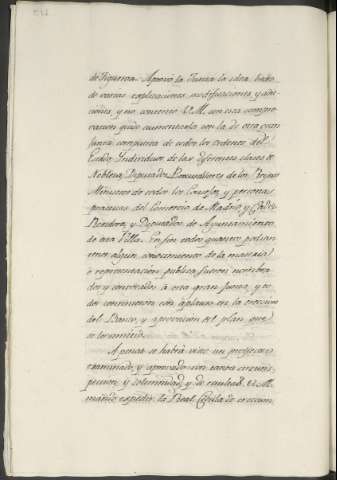 de Figueroa. Aprovó la Junta la idea, baxo
de varias explicaciones, modificaciones y adi-
ciones, y no contento S.M. con esta compro-
vacion quiso aumentarla con la de otra gran
Junta compuesta de todos los ordenes del
Estado, Individuos de las diferentes clases de
Nobleza, Diputados, Procuradores de los Reynos
Ministros de todos los Consejos, y personas
practicas del Comercio de Madrid y
Regidores, y Diputados de Ayuntamiento
de esta Villa. En fin todos quantos podian
tener algun conocimiento de la materia
ó representacion publica fueron nombra-
dos y convocados á esta gran Junta, y to-
dos convinieron con aplauso en la ereccion
del Banco, y aprovacion del plan que
se
Apenas se habrá visto un proyecto
examinado, y aprovado con tanta circuns-
peccion y solemnidad, y de resultas S.M.
mandó expedir la Real Cedula de ereccion